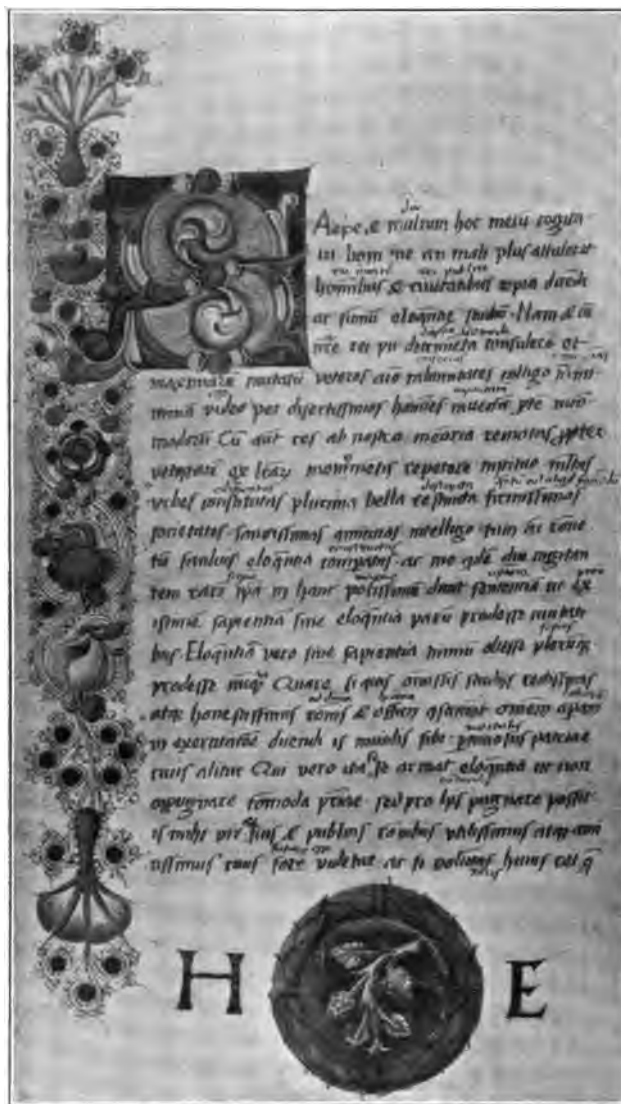 Aepe, & multum hoc mecu cogita-
ui boni ne an mali plus attulerit
hominibus & ciuitatibus copia dicēdi
ac sūmū eloquētiae studiū. Nam & cū
detrimēta considero et
maximarū ciuitatū veteres aīo calamitates colligo nō mi-
nimā video per disertissimos homīes inuectā pte incō-
modorū Cū aut res ab nostra memoria remotas ppter
vetustatē ex lrarū monimētis repetere instituo multas
vrbes constitutas plurima bella restincta firmissimas
societates sanctissimas amicitias intelligo tum
eloqntia comparatas. ac me qdē diu cogitan
tem ratio ipa in hanc potissimū ducit sententiā ut ex
istimē sapientiā sine eloqntia parū prodesse ciuitati
bus. Eloqntiā vero sine sapientia nimiū obesse plerūq
prodesse nūcq Quare si quis omissis studiis rectissimis
atq honestissimis rōnis & officii cōsumit omnem opam
in exercitatiōe dicēdi is inutilis sibi pniciosus patriae
ciuis alitur Qui vero ita se armat eloqntia ut non
oppugnare cōmoda ptriae sed pro hys pugnare possit
is mihi vir & suis & publicis rōnibus vtilissimus atq ami
cissimus ciuis fore videtur ac si volumus huius rei q
H E